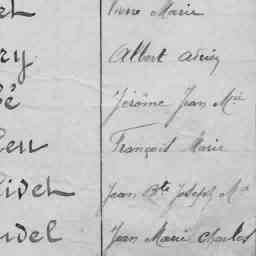 et Pierre Marie
ry Albert Adrien
é Jérôme Jean Mie
leu François Marie
ivet Jean Bte Joseph Mie
udel Jean Marie Charles